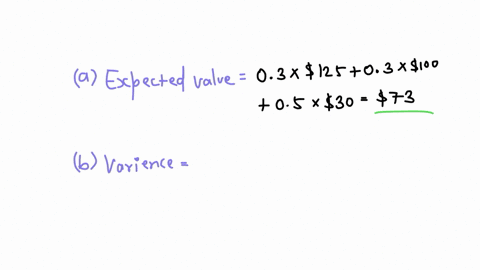 (a) Expected value = 0.3 x $125 + 0.3 x $100
+ 0.5 x $30 = $73
(b) Varience =